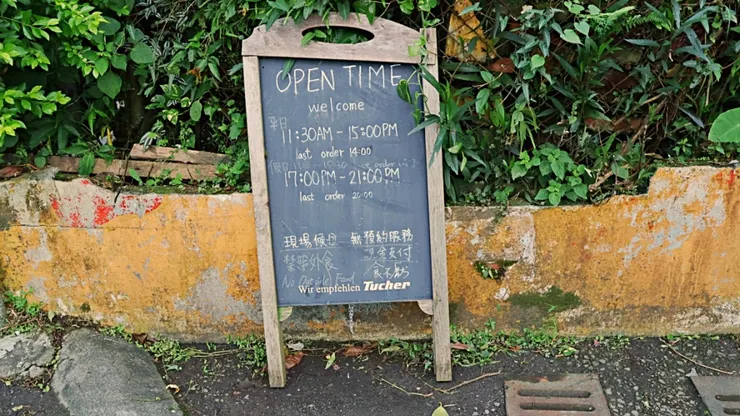 OPEN TIME
welcome
平日
11:30AM - 15:00PM
last order 14:00
17:00PM - 21:00PM
last order 20:00
現場候位 無預約服務
禁帶外食 現金支付
No Outside Food
Wir empfehlen Tucher